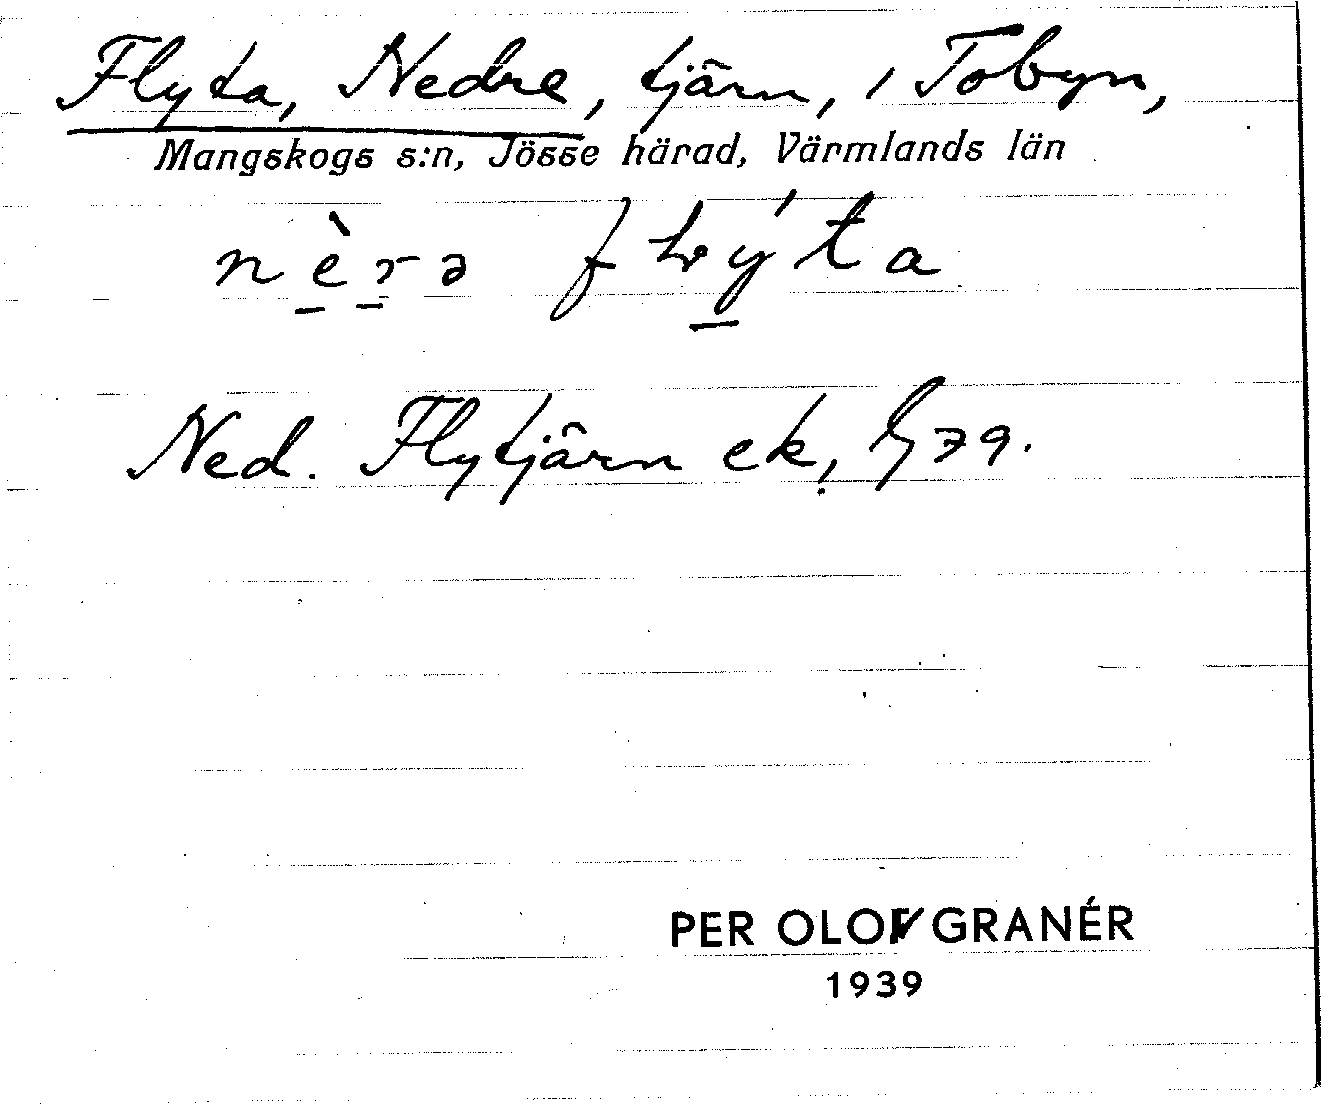 Flyta, Nedre, tjärn, i Tobyn,
Mangskogs s:n, Jösse härad, Värmlands län
nè̱ṟə fɫý̱ta
Ned. Flytjärn ek,
PER OLOF GRANÉR
1939